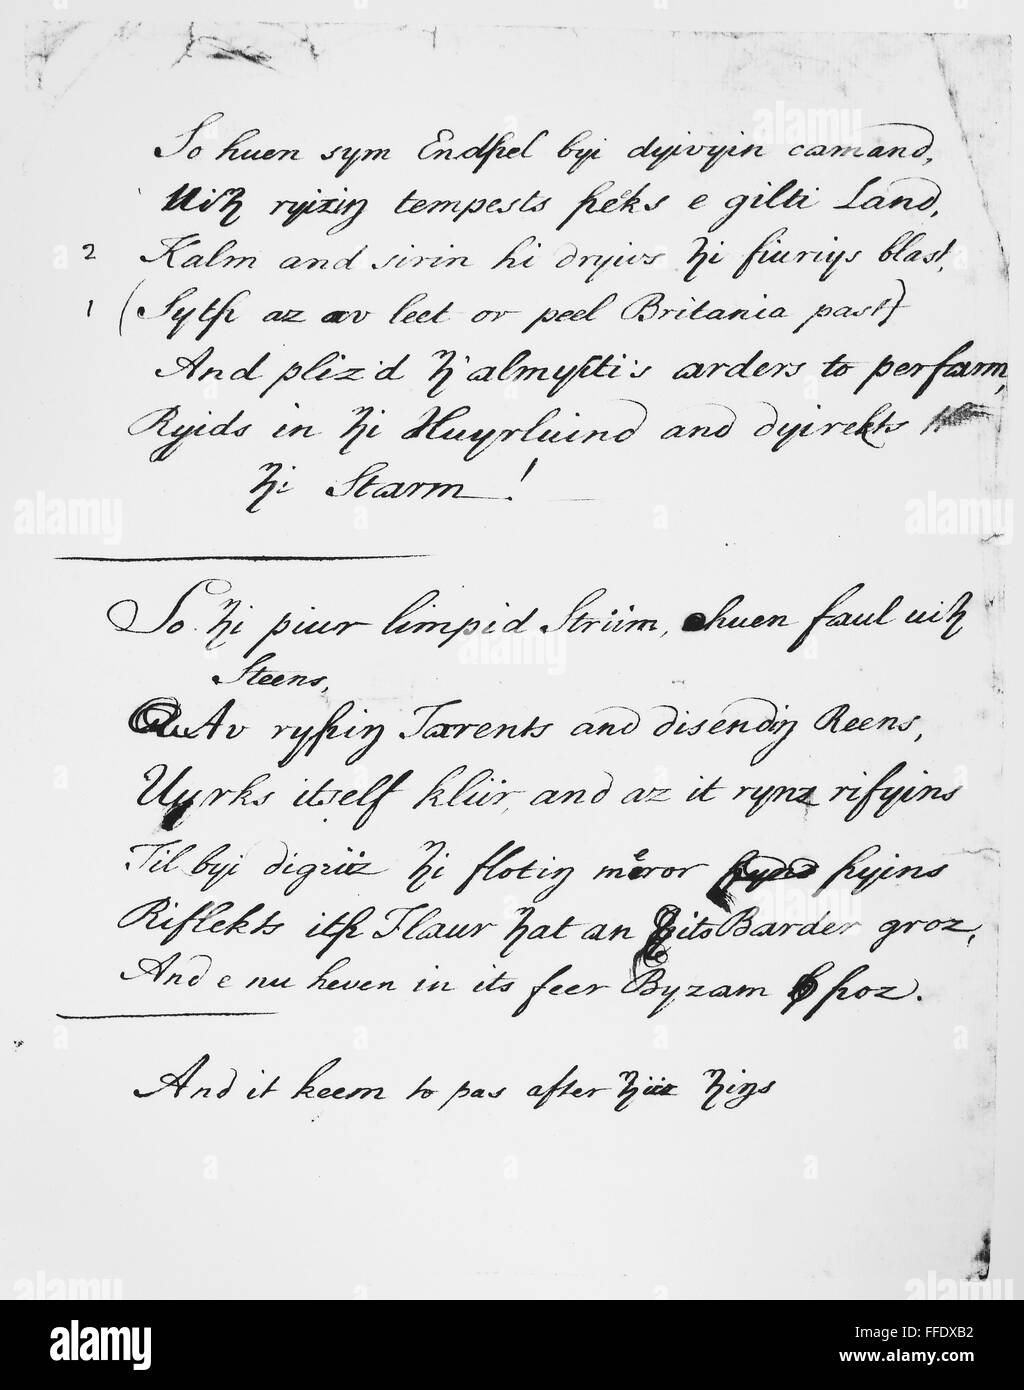 So huen sym Endſhel byi dyivyin camand,
Uiɧ ryiziŋ tempests ſheks e gilti Land,
2 Kalm and sirin hi dryivs ɧi fiuriys blast,
1 (Sytſh az av leet or peel Britania past)
And pliz'd ɧ'almyiti's arders to perfarm,
Ryids in ɧi Huyrluind and dyirekts
ɧi Starm!
So ɧi piur limpid Striim, huen faul uiɧ
Steens,
Av ryſhiŋ Tarents and disendiŋ Reens,
Uyrks itself kliir, and az it rynz rifyins
Til byi digriiz ɧi flotiŋ meror ſhyins
Riflekts itſh Flaur ɧat an its Barder groz,
And e nu heven in its feer Byzam ſhoz.
And it keem to pas after ɧiiz ɧiŋs
alamy
Image ID: FFDXB2
www.alamy.com